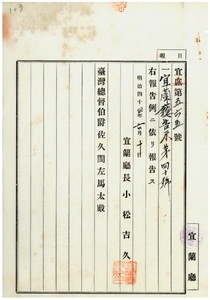 日報
宜庶第五六五號
一宜蘭廳告示第四十號
右報告例ニ依リ報告ス
明治四十四年二月十日
宜蘭廳長小松吉久
臺灣總督伯爵佐久間左馬太殿
宜蘭廳